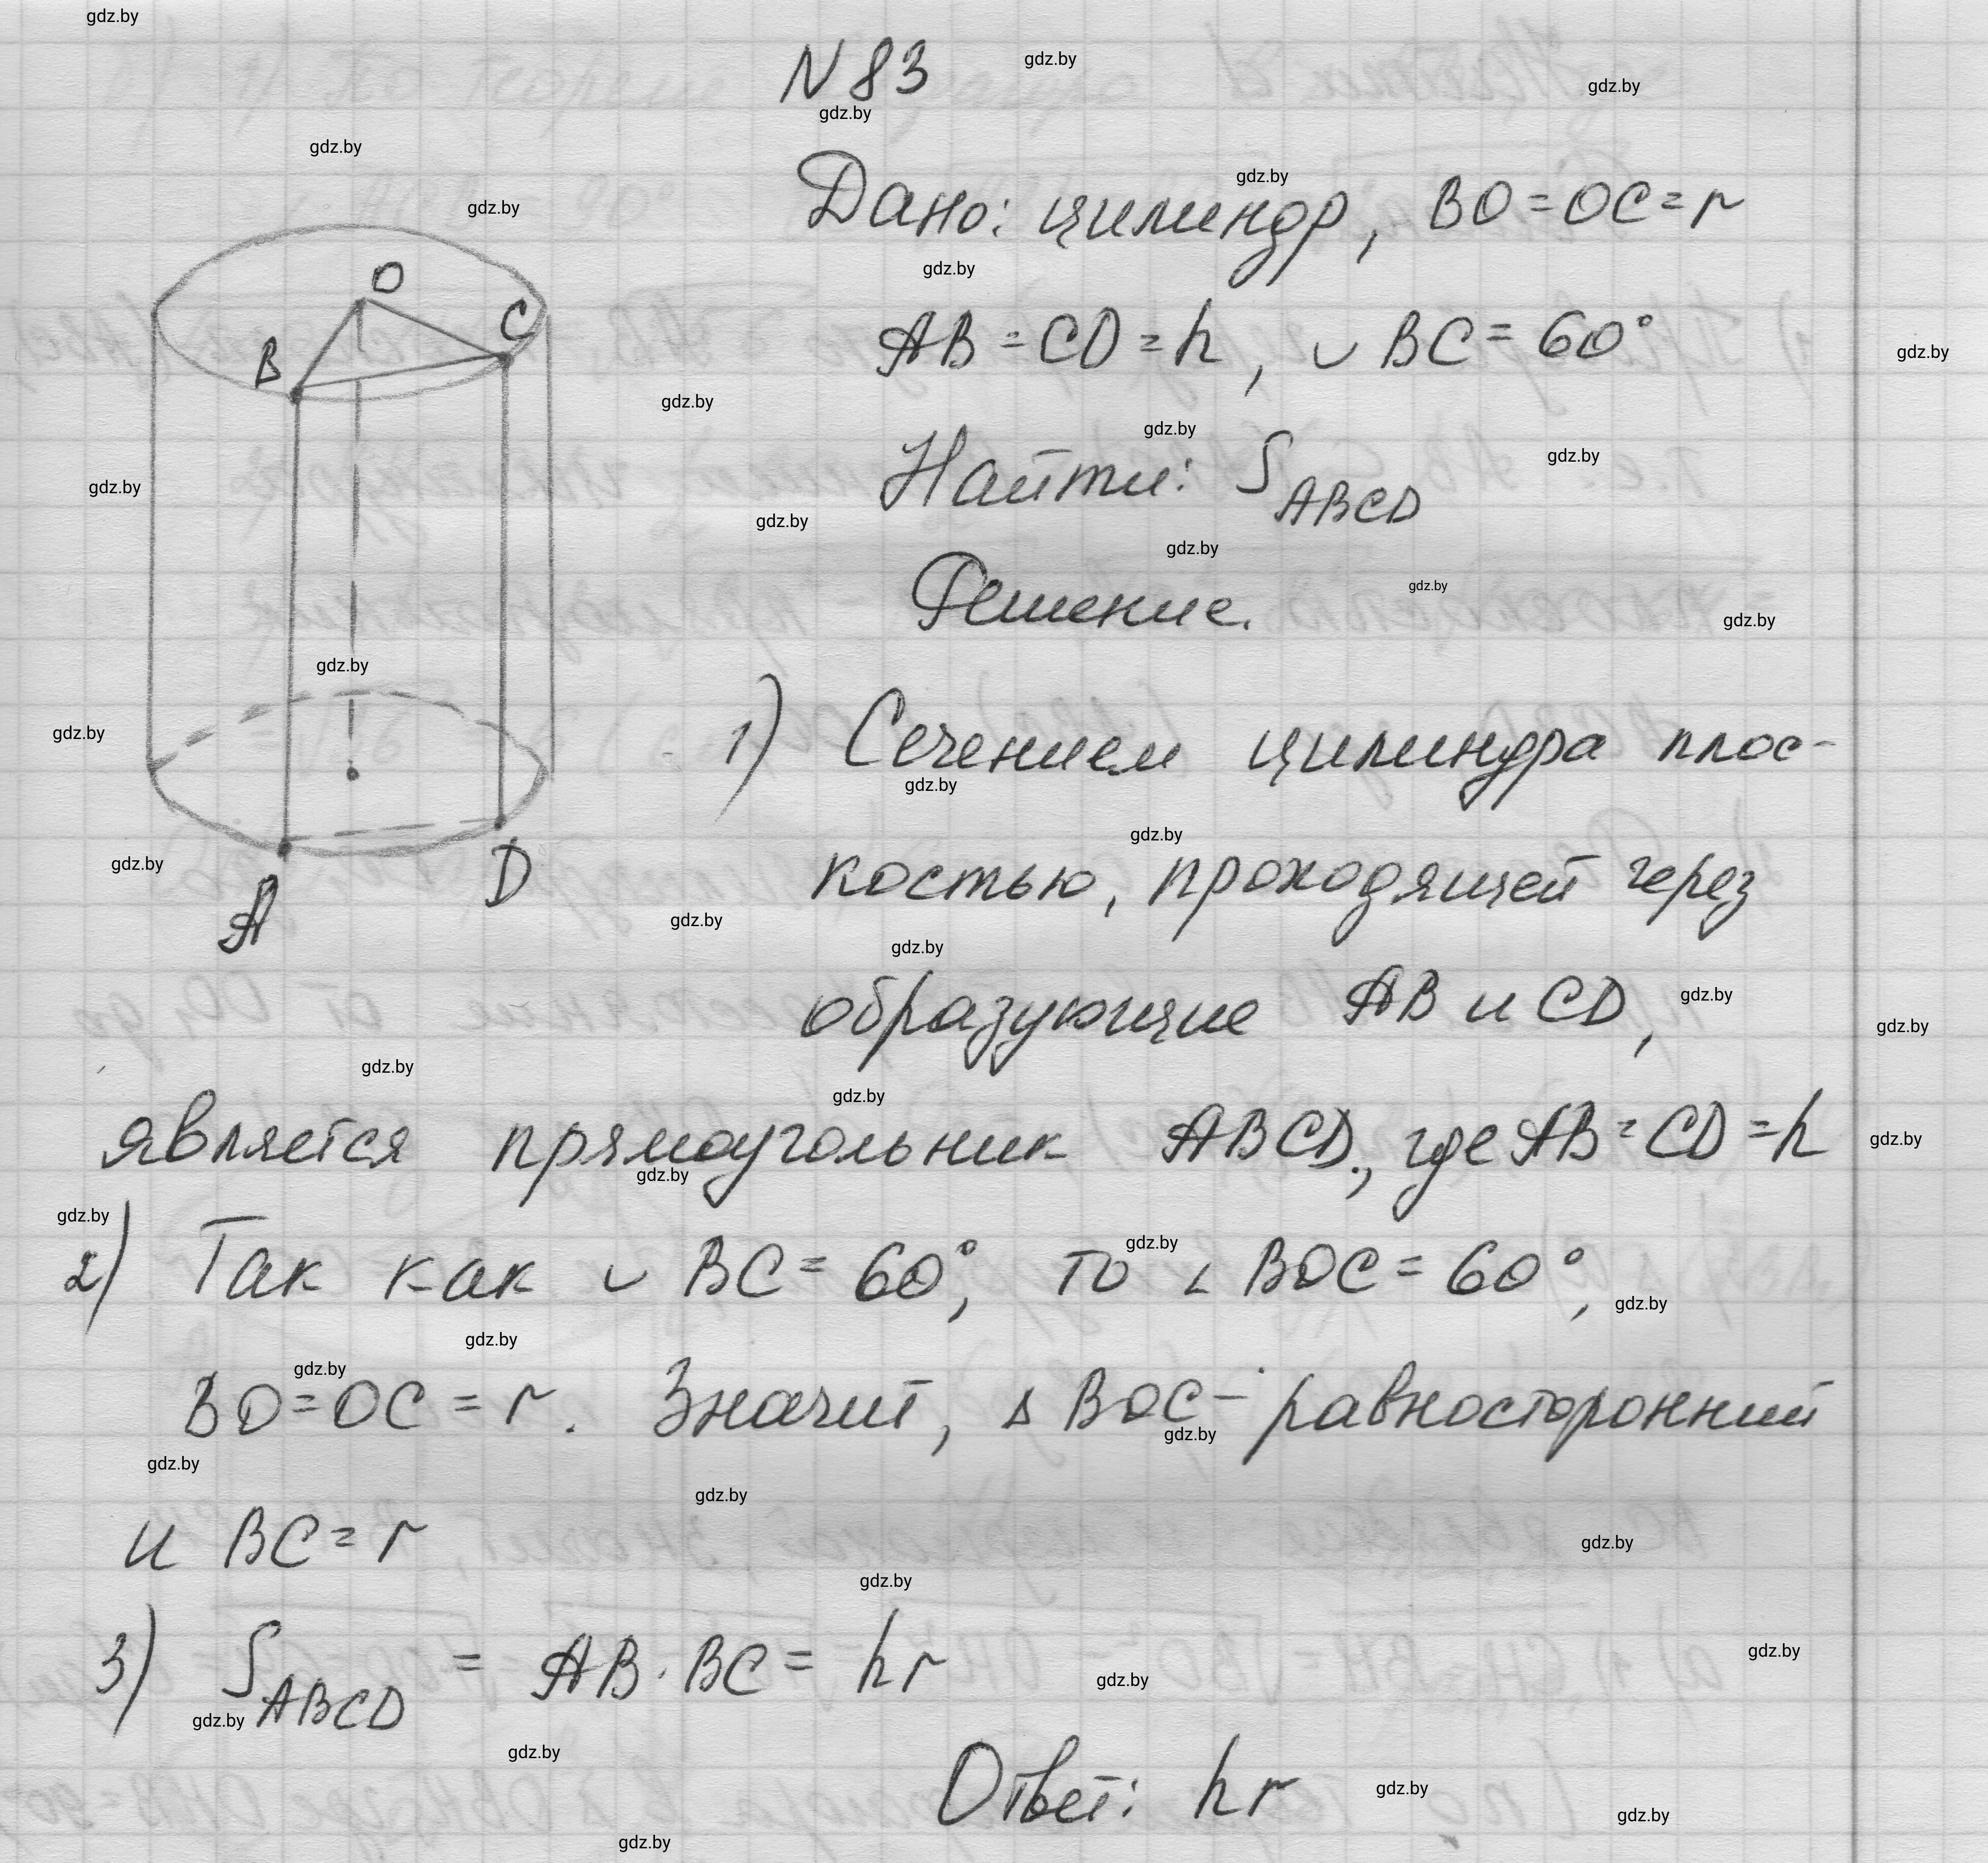 N 83
Дано: цилиндр, BO=OC=r
AB=CD=h, ◡BC=60°
Найти: S_ABCD
Решение.
O
C
B
A
D
1) Сечением цилиндра плос-
костью, проходящей через
образующие AB и CD,
является прямоугольник ABCD, где AB=CD=h
2) Так как ◡BC=60°, то ∠BOC=60°,
BO=OC=r. Значит, △BOC- равносторонний
и BC=r
3) S_ABCD = AB·BC= hr
Ответ: hr
gdz.by